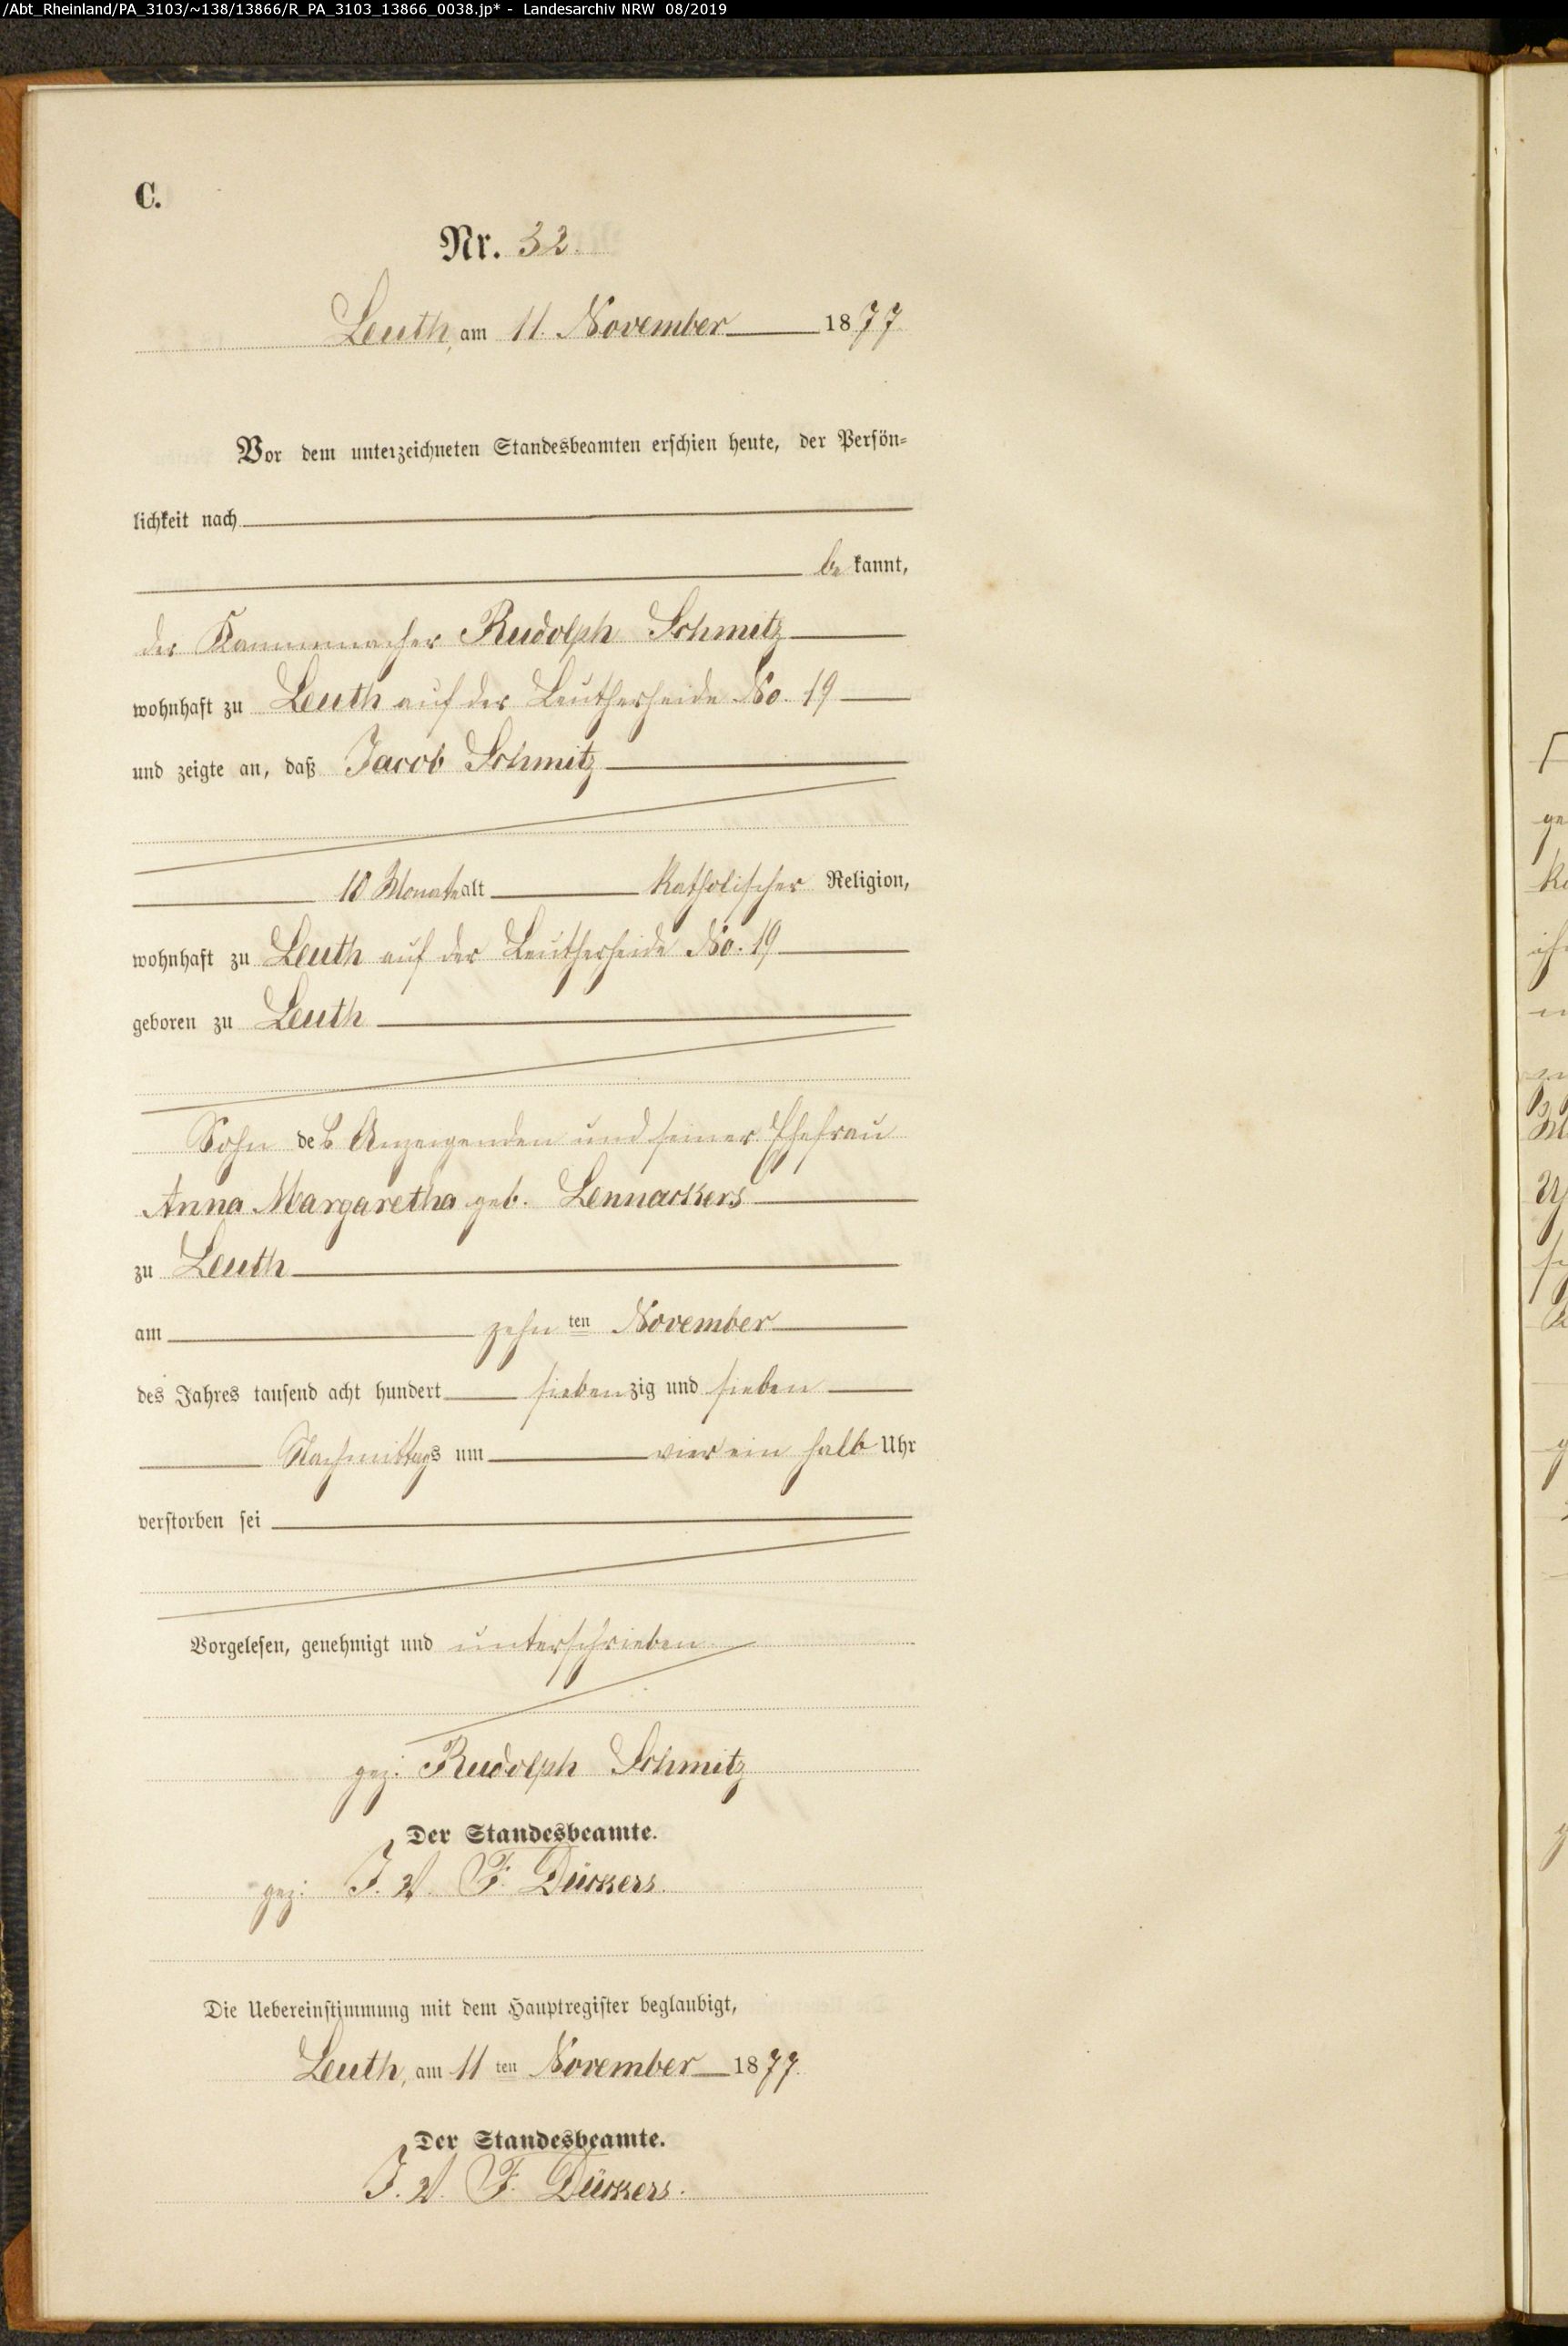 /Abt_Rheinland/PA_3103/~138/13866/R_PA_3103_13866_0038.jp* - Landesarchiv NRW 08/2019
C.
Nr. 32.
Leuth, am 11. November 1877.
Vor dem unterzeichneten Standesbeamten erschien heute, der Persön-
lichkeit nach
be kannt,
der Kammmacher Rudolph Schmitz
wohnhaft zu Leuth auf der Leutherheide No. 19
und zeigte an, daß Jacob Schmitz
10 Monate alt katholischer Religion,
wohnhaft zu Leuth auf der Leutherheide No. 19
geboren zu Leuth
Sohn des Anzeigenden und seiner Ehefrau
Anna Margaretha geb. Lennackers
zu Leuth
am zehn ten November
des Jahres tausend acht hundert siebenzig und sieben
Nachmittags um vier ein halb Uhr
verstorben sei
Vorgelesen, genehmigt und unterschrieben
gez: Rudolph Schmitz
Der Standesbeamte.
gez: J. V. F. Dückers.
Die Uebereinstimmung mit dem Hauptregister beglaubigt,
Leuth, am 11 ten November 1877.
Der Standesbeamte.
J. V. F. Dückers.